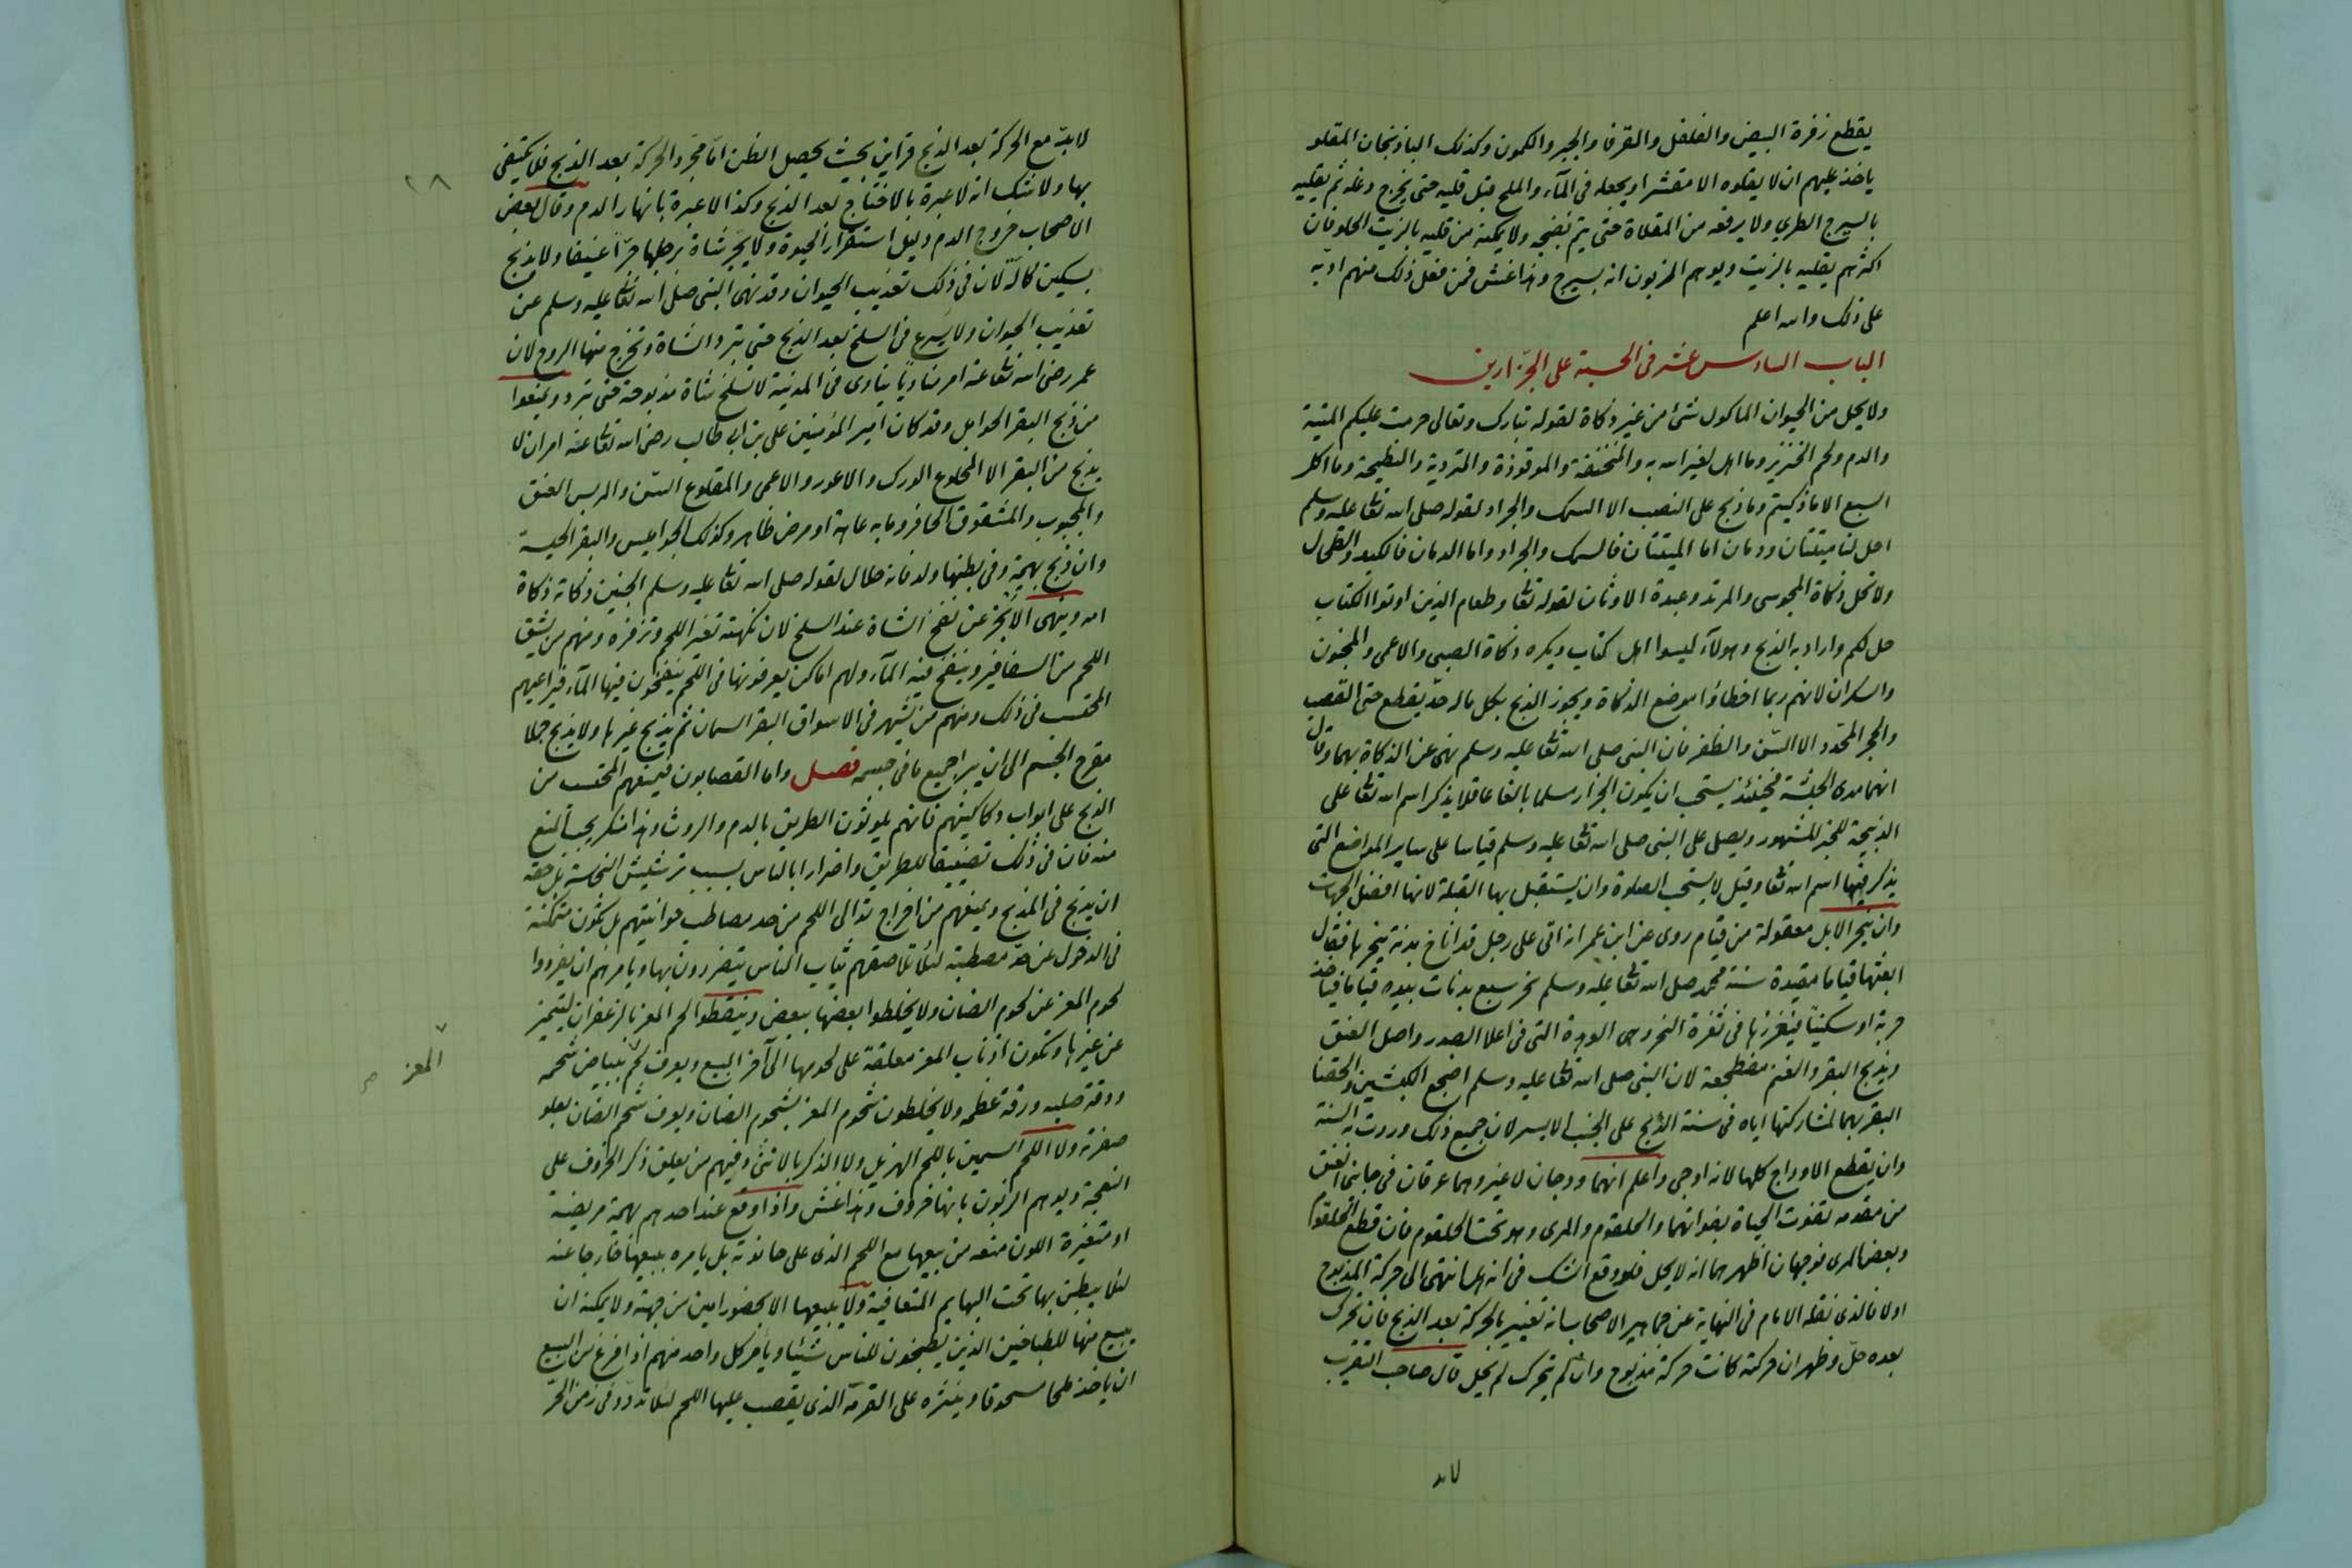 يقطع زفرة البيض والفلفل والقرفا والجبر والكمون وكذلك الباذنجان المقلو
ياخذ عليهم ان لا يقلوه الا مقشرا ويجعله فى المآء والملح قبل قليه حتى يخرج دغله ثم يقليه
بالسيرج الطرى ولا يرفعه من المقلاة حتى يتم نضجه ولا يمكنه من قليه بالزيت الحلو فان
اكثرهم يقليه بالزيت ويوهم الزبون انه بسيرج وهذا غش فمن فعل ذلك منهم ادبه
على ذلك والله اعلم
الباب السادس عشر فى الحسبة على الجزّارين
ولا يحل من الحيوان الماكول شئ من غير ذكاة لقوله تبارك وتعالى حرمت عليكم الميتة
والدم ولحم الخنزير وما اهل لغير الله به والمنخنقة والموقوذة والمتردية والنطيحة وما اكل
السبع الا ما ذكيتم وما ذبح على النصب الا السمك والجراد لقوله صلى الله تعا عليه وسلم
احل لنا ميتتان ودمان اما الميتتان فالسمك والجراد واما الدمان فالكبد والطحال
ولا تحل ذكاة المجوسى والمرتد وعبدة الاوثان لقوله تعا وطعام الذين اوتوا الكتاب
حل لكم واراد به الذبح وهولآء ليسوا اهل كتاب ويكره ذكاة الصبى والاعمى والمجنون
والسكران لانهم ربما اخطاؤا موضع الذكاة ويجوز الذبح بكل ماله حدّ يقطع حتى القصب
والحجر المحدد الا السّن والظفر فان النبى صلى الله تعا عليه وسلم نهى عن الذكاة بهما وقال
انهما مدى الحبشة فحينئذ يستحب ان يكون الجزار مسلما بالغا عاقلا يذكر اسم الله تعا على
الذبيحة للخبر المشهور ويصلى على النبى صلى الله تعا عليه وسلم قياسا على ساير المواضع التى
يذكر فيها اسم الله تعا وقيل لا يستحب الصلوة وان يستقبل بها القبلة لانها افضل الجهات
وان ينحر الابل معقولة من قيام روى عن ابن عمر انه اتى على رجل قد اناخ بدنة ينحرها فقال
ابعثها قياما مقيدة سنة محمد صلى الله تعا عليه وسلم نحر سبع بدنات بيده قياما فياخذ
حربة او سكينا فيغرزها فى ثغرة النحر وهى الوهدة التى فى اعلا الصدر واصل العنق
ويذبح البقر والغنم مضطجعة لان النبى صلى الله تعا عليه وسلم اضجع الكبشين والحقنا
البقر بهما لمشاركتها اياه فى سنة الذبح على الجنب الايسر لان جميع ذلك وردت به السنة
وان يقطع الاوداج كلها لانه اوحى واعلم انهما ودجان لا غير وهما عرقان فى جانبى العنق
من مقدمه تفوت الحياة بفواتهما والحلقوم والمرى وهو تحت الحلقوم فان قطع الحلقوم
وبعض المرى فوجهان اظهرهما انه لا يحل فلو وقع الشك فى انه هل انتهى الى حركة المذبوح
اولا فالذى نقله الامام فى النهاية عن جماهير الاصحاب انه تغيير بالحركة بعد الذبح فان تحرك
بعده حلّ وظهر ان حركته كانت حركة مذبوح وان لم يتحرك لم يحل قال صاحب التقريب
لابد
٢٨
لابدّ مع الحركة بعد الذبح قراين بحيث يحصل الظن امّا مجرد الحركة بعد الذبح فلا يكتفى
بها ولا شك انه لا عبرة بالاختلاج بعد الذبح وكذا لا عبرة بانهار الدم وقال بعض
الاصحاب خروج الدم دليل استقرار الحيوة ولا يجر شاة برجلها جرّا عنيفا ولا يذبح
بسكين كالّة لان فى ذلك تعذيب الحيوان وقد نهى النبى صلى الله تعا عليه وسلم عن
تعذيب الحيوان ولا يسرع فى السلخ بعد الذبح حتى تبرد الشاة وتخرج منها الروح لان
عمر رضى الله تعا عنه امر مناديا ينادى فى المدينة لا تسلخ شاة مذبوحة حتى تبرد ويمنعوا
من ذبح البقر الحوامل وقد كان امير المؤمنين على بن ابى طالب رضى الله تعا عنه امر ان لا
يذبح من البقر الا المخلوع الورك والاعور والاعمى والمقلوع السّن والدبس العنق
والمجبوب والمشقوق الحافر وما به عاهة او مرض ظاهر وكذلك الجواميس والبقر الحبسة
وان ذبح بهيمة وفى بطنها ولد فانه حلال لقوله صلى الله تعا عليه وسلم الجنين ذكاته ذكاة
امه وينهى الابخر عن نفخ الشاة عند السلخ لان نكهته تغير اللحم وتزفره ومنهم من يشق
اللحم من السفافير وينفخ فيه المآء ولهم اماكن يعرفونها فى اللحم ينفخون فيها المآء فيراعيهم
المحتسب فى ذلك ومنهم من يشهر فى الاسواق البقر السمان ثم يذبح غيرها ولا يذبح جملا
مقرح الجسم الى ان يبرا جميع ما فى جسمه فصل واما القصابون فيمنعهم المحتسب من
الذبح على ابواب دكاكينهم فانهم يلوثون الطريق بالدم والروث وهذا منكر يجب المنع
منه فان فى ذلك تضييقا للطريق واضرارا بالناس بسبب ترشيش النجاسة بل حقه
ان يذبح فى المذبح ويمنعهم من اخراج توالى اللحم من حد مصاطب حوانيتهم بل تكون متمكنة
فى الدخول عن حدّ مصطبته لئلا تلاصقهم ثياب الناس يتضررون بها ويامرهم ان يفردوا
لحوم المعز عن لحوم الضان ولا يخلطوا بعضها ببعض وينقطوا لحم المعز بالزعفران ليتميز
عن غيرها وتكون اذناب المعز معلقة على لحومها الى آخر البيع ويعرف لحم ببياض شحمه
المعز صح
ودقة ضلعه ورقة عظمه ولا يخلطون شحوم المعز بشحوم الضان ويعرف شحم الضان بعلو
صفرته ولا اللحم السمين باللحم الهزيل ولا الذكر بالانثى وفيهم من يعلق ذكر الخروف على
النعجة ويوهم الزبون بانها خروف وهذا غش واذا وقع عند احدهم بهيمة مريضة
او متغيرة اللون منعه من بيعها مع اللحم الذى على حانوته بل يامره ببيعها خارجا عنه
لئلا يبطن بها تحت البهايم المتعافية ولا يبيعها الا بحضور امين من جهته ولا يمكنه ان
يبيع منها للطباخين الذين يطبخون للناس شيئا ويامر كل واحد منهم اذا فرغ من البيع
ان ياخذ ملحا مسحوقا وينثره على القرمة الذى يقصب عليها اللحم لئلا تدود فى زمن الحرّ